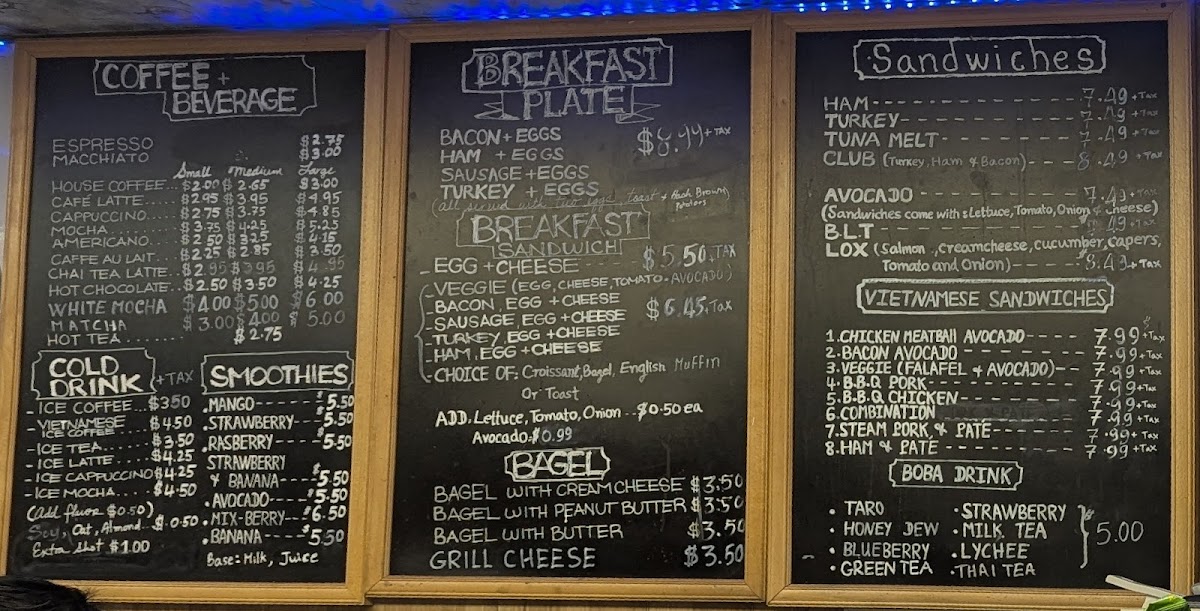 COFFEE +
BEVERAGE
ESPRESSO $2.75
MACCHIATO $3.00
Small Medium Large
HOUSE COFFEE... $2.00 $2.65 $3.00
CAFÉ LATTE..... $2.95 $3.95 $4.95
CAPPUCCINO..... $2.75 $3.75 $4.85
MOCHA..... $3.75 $4.25 $5.25
AMERICANO.... $2.50 $3.25 $4.15
CAFFE AU LAIT... $2.25 $2.85 $3.50
CHAI TEA LATTE.. $2.95 $3.95 $4.95
HOT CHOCOLATE.. $2.50 $3.50 $4.25
WHITE MOCHA $4.00 $5.00 $6.00
MATCHA $3.00 $4.00 $5.00
HOT TEA........ $2.75
COLD
DRINK + TAX
- ICE COFFEE... $3.50
- VIETNAMESE $4.50
ICE COFFEE
- ICE TEA..... $3.50
- ICE LATTE.... $4.25
- ICE CAPPUCCINO $4.25
- ICE MOCHA.... $4.50
(Add flavor $0.50)
Soy, Oat, Almond... $0.50
Extra shot $1.00
SMOOTHIES
.MANGO------- $5.50
.STRAWBERRY---- $5.50
.RASBERRY ---- $5.50
STRAWBERRY
& BANANA---- $5.50
.AVOCADO----- $5.50
.MIX-BERRY--- $6.50
.BANANA---- $5.50
Base: Milk, Juice
BREAKFAST
PLATE
BACON + EGGS $8.99 + TAX
HAM + EGGS
SAUSAGE + EGGS
TURKEY + EGGS
(all served with two eggs, toast & Hash Brown
Potatoes
BREAKFAST
SANDWICH
- EGG + CHEESE ---- $5.50 + TAX
- VEGGIE (EGG, CHEESE, TOMATO - AVOCADO)
- BACON, EGG + CHEESE $6.45 + Tax
- SAUSAGE, EGG + CHEESE
- TURKEY, EGG + CHEESE
- HAM, EGG + CHEESE
- CHOICE OF: Croissant, Bagel, English Muffin
Or Toast
ADD. Lettuce, Tomato, Onion... $0.50 ea
Avocado. $0.99
BAGEL
BAGEL WITH CREAM CHEESE $3.50
BAGEL WITH PEANUT BUTTER $3.50
BAGEL WITH BUTTER $3.50
GRILL CHEESE $3.50
Sandwiches
HAM------------------- 7.49 + Tax
TURKEY---------------- 7.49 + Tax
TUNA MELT------------- 7.49 + Tax
CLUB (Turkey, Ham & Bacon)---- 8.49 + Tax
AVOCADO ------------- 7.49 + Tax
(Sandwiches come with: Lettuce, Tomato, Onion & cheese)
B.L.T ------------- 7.49 + Tax
LOX (Salmon, Creamcheese, cucumber, Capers,
Tomato and Onion)---------- 8.49 + Tax
VIETNAMESE SANDWICHES
1.CHICKEN MEATBALL AVOCADO----- 7.99 + Tax
2.BACON AVOCADO --------- 7.99 + Tax
3.VEGGIE (FALAFEL & AVOCADO)--- 7.99 + Tax
4.B.B.Q PORK------------ 7.99 + Tax
5.B.B.Q CHICKEN---------- 7.99 + Tax
6.COMBINATION 7.99 + Tax
7.STEAM PORK & PATE------- 7.99 + Tax
8.HAM & PATE ----------- 7.99 + Tax
BOBA DRINK
• TARO • STRAWBERRY
• HONEY DEW • MILK TEA 5.00
• BLUEBERRY • LYCHEE
• GREEN TEA • THAI TEA